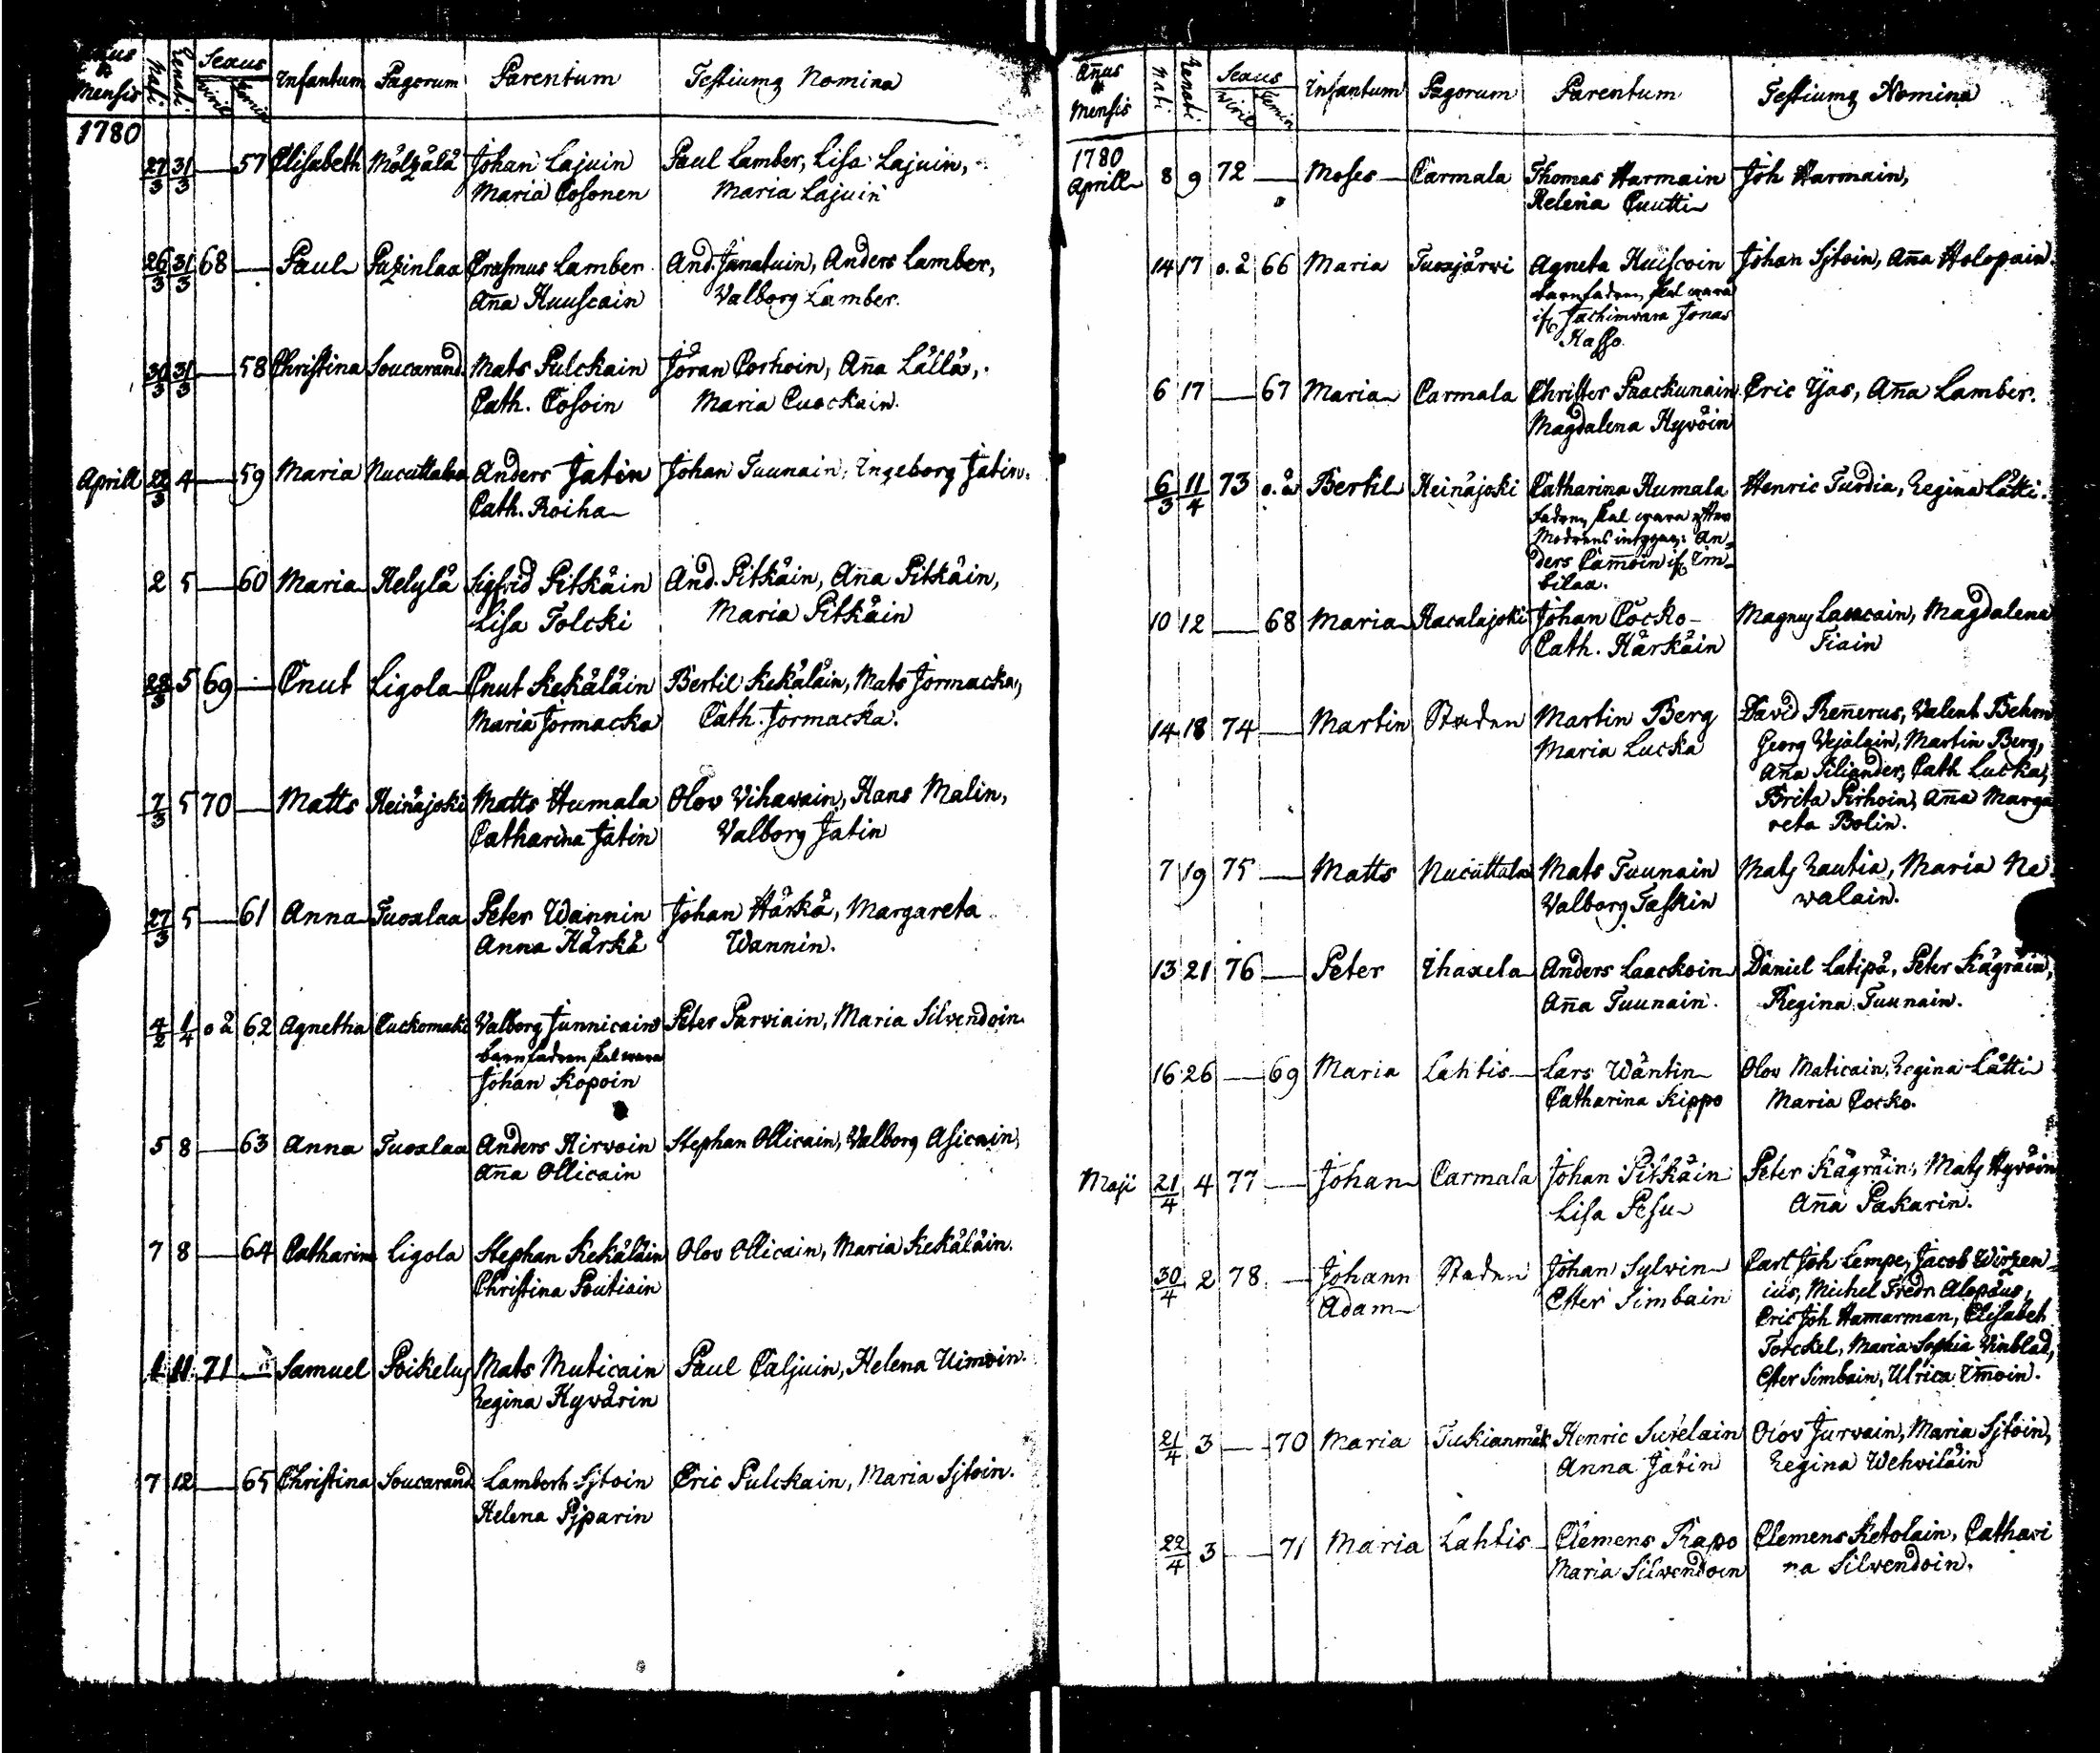 Annus & Mensis Nati Renati Sexus Viril Femin Infantum Pagorum Parentum Testiumq Nomina
1780
27/3 31/3 — 57 Elisabeth Mölzälä Johan Lajuin Paul Lamber, Lisa Lajuin,
Maria Cosonen Maria Lajuin
26/3 31/3 68 — Paul Puzinlaa Erasmus Lamber And. Janatuin, Anders Lamber,
Aña Huuscain Valborg Lamber.
30/3 31/3 — 58 Christina Soucarand Mats Pulckain Jöran Corhoin, Aña Lällä,
Cath. Cosoin Maria Cuockain.
Aprill 22/3 4 — 59 Maria Nucuttalaa Anders Jatin Johan Tuunain, Ingeborg Jatin.
Cath. Roiha
2 5 — 60 Maria Helylä Sigfrid Pitkäin And. Pitkäin, Aña Pitkäin,
Lisa Tolcki Maria Pitkäin
28/3 5 69 — Cnut Ligola Cnut Kekäläin Bertil Kekäläin, Mats Jormacka,
Maria Jormacka Cath. Jormacka.
7/3 5 70 — Matts Heinäjoki Matts Humala Olov Vihavain, Hans Malin,
Catharina Jatin Valborg Jatin
27/3 5 — 61 Anna Tuoxlaa Peter Wannin Johan Härkä, Margareta
Anna Härkä Wannin.
4/2 1/4 o ä 62 Agnetha Cuckomaki Valborg Junnicain Peter Parviain, Maria Silvendoin
barnfadren skal wara
Johan Kopoin
5 8 — 63 Anna Tuoxlaa Anders Hirvoin Stephan Ollicain, Valborg Asicain,
Aña Ollicain
7 8 — 64 Catharina Ligola Stephan Kekäläin Olov Ollicain, Maria Kekäläin.
Christina Poutiain
1 11 71 — Samuel Poikelus Mats Muticain Paul Caljuin, Helena Uimoin.
Regina Hyvärin
7 12 — 65 Christina Soucarand Lambert Sjtoin Eric Pulckain, Maria Sjtoin.
Helena Pjparin
Añus & Mensis Nati Renati Sexus Viril Femin Infantum Pagorum Parentum Testiumq Nomina
1780
Aprill 8 9 72 — Moses Carmala Thomas Harmain Joh Harmain,
Helena Cuutti
14 17 o. ä 66 Maria Tuoxjärwi Agneta Huiscoin Johan Sjtoin, Aña Holopain.
barnfadren skal wara
if. Jachimvara Jonas
Hasso
6 17 — 67 Maria Carmala Christer Paackunain Eric Yjas, Aña Lamber.
Magdalena Hyvöin
6/3 11/4 73 o. ä Bertil Heinäjoki Catharina Humala Henric Turdia, Regina Lätti.
fadren skal wara efter
Modrens intygan: An-
ders Cam̃oin if. Im-
bilaa.
10 12 — 68 Maria Hacalajoki Johan Cocko Magnus Laucain, Magdalena
Cath. Härkäin Tiain
14 18 74 — Martin Staden Martin Berg David Reñerus, Valent Behm
Maria Lucka Georg Vejalain, Martin Berg,
Aña Siliander, Cath Lucka,
Brita Pirhoin, Aña Marga
reta Bolin.
7 19 75 — Matts Nucuttalaa Mats Tuunain Mats Rautia, Maria Ne
Valborg Taskin walain.
13 21 76 — Peter Ihaxela Anders Laackoin Daniel Latipä, Peter Kägräin,
Aña Tuunain. Regina Tuunain.
16 26 — 69 Maria Lahtis Lars Wäntin Olov Maticain, Regina Lätti
Catharina Kippo Maria Cocko.
Maji 21/4 4 77 — Johan Carmala Johan Pitkäin Peter Kägräin, Mats Hyvöin
Lisa Pesu Aña Pakarin.
30/4 2 78 — Johann Staden Johan Sylvin Carl Joh Lempe, Jacob Wirzen
Adam Ester Simbain ius, Michel Fredr Alopäus,
Eric Joh Hamarman, Elisabeth
Torckel, Maria Sophia Vinblad,
Ester Simbain, Ulrica Im̃oin.
21/4 3 — 70 Maria Tukianmäk Henric Surelain Olov Jurvain, Maria Sjtoin,
Anna Jatin Regina Wehviläin
22/4 3 — 71 Maria Lahtis Clemens Rapo Clemens Ketolain, Cathari
Maria Silvendoin na Silvendoin.